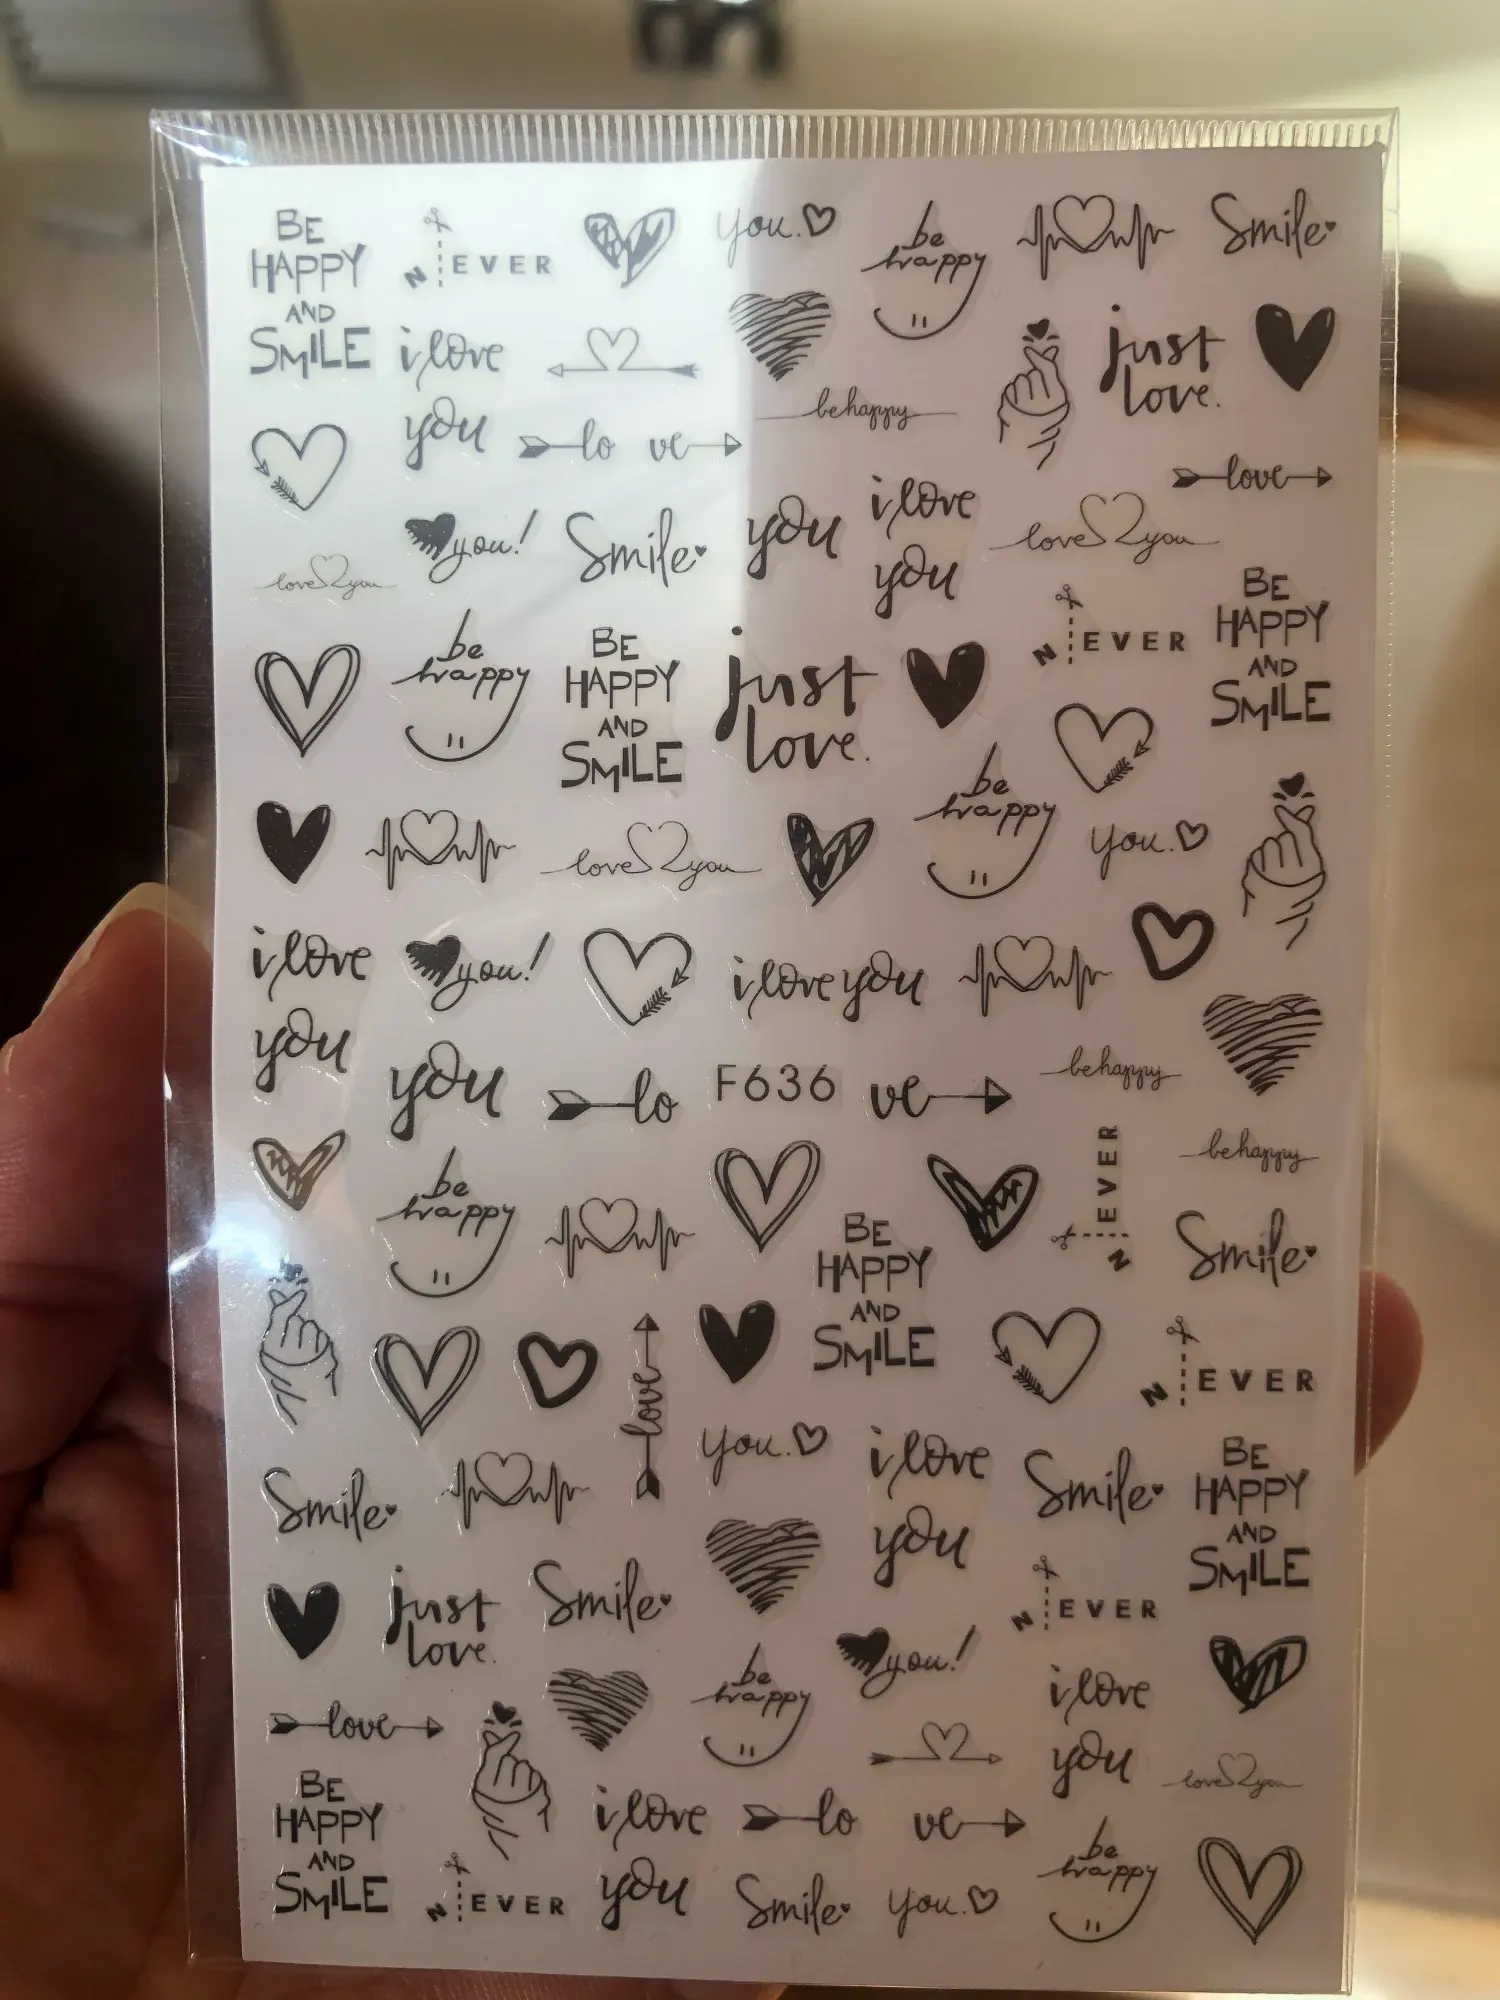 BE
HAPPY
AND
SMILE
N EVER
you.
be
happy
Smile
i love
you
just
love.
be happy
lo ve
love
love you
you!
Smile
you
i love
you
love you
N EVER
BE
HAPPY
AND
SMILE
be
happy
BE
HAPPY
AND
SMILE
just
love.
be
happy
love you
you.
i love
you
you!
i love you
you
lo
F636
ve
be happy
be happy
be
happy
N EVER
BE
HAPPY
AND
SMILE
Smile
love
N EVER
you.
i love
you
Smile
BE
HAPPY
AND
SMILE
Smile
just
love.
Smile
N EVER
you!
be
happy
i love
you
love
love you
BE
HAPPY
AND
SMILE
i love
you
lo ve
be
happy
N EVER
Smile
you.